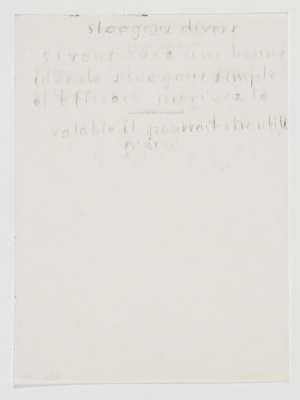 sloogans divers
si vous avez une bonne
idée de sloogans simple
et efficace merivez le
valable il pourrait etre utile
Merci